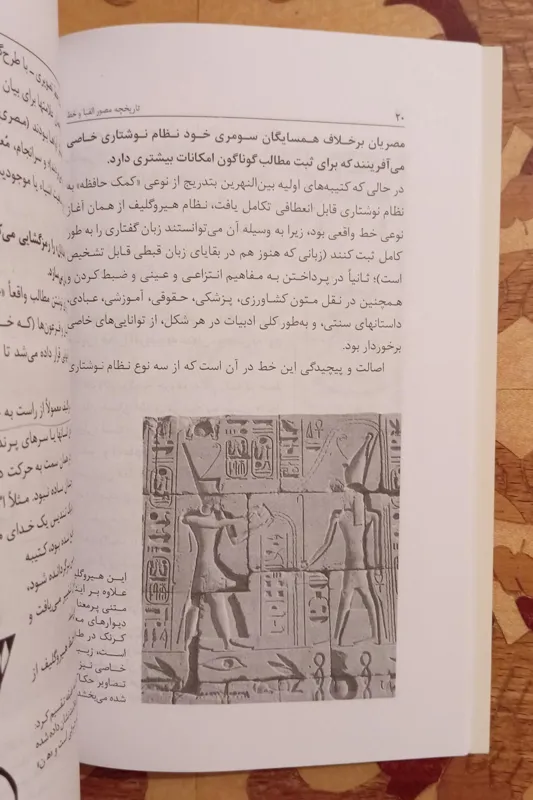 ۳۰
تاریخچه مصور الفبا و خط
مصریان برخلاف همسایگان سومری خود نظام نوشتاری خاصی
می‌آفرینند که برای ثبت مطالب گوناگون امکانات بیشتری دارد.
در حالی که کتیبه‌های اولیه بین‌النهرین بتدریج از نوعی «کمک حافظه» به
نظام نوشتاری قابل انعطافی تکامل یافت، نظام هیروگلیف از همان آغاز
نوعی خط واقعی بود، زیرا به وسیله آن می‌توانستند زبان گفتاری را به طور
کامل ثبت کنند (زبانی که هنوز هم در بقایای زبان قبطی قابل تشخیص
است)؛ ثانیاً در پرداختن به مفاهیم انتزاعی و عینی و ضبط کردن و
همچنین در نقل متون کشاورزی، پزشکی، حقوقی، آموزشی، عبادی،
داستانهای سنتی، و به‌طور کلی ادبیات در هر شکل، از توانایی‌های خاصی
برخوردار بود.
اصالت و پیچیدگی این خط در آن است که از سه نوع نظام نوشتاری
این هیروگلی
علاوه بر این
متنی پرمعنا
دیوارهای
کرنک در
است، زیب
خاصی نیز
تصاویر حکا
شده می‌بخشد
تصویری ـ با طرح
علامتها برای بیان
بودند (مصری
و سرانجام،
اشیاء یا موجودی
را رمزگشایی می‌ک
نوشتن مطالب واقعاً
فرعون‌ها (که خ
قرار داده می‌شد تا
معمولاً از راست به
یا سرهای پرند
همان سمت به حرکت د
ساده نبود. مثلاً
تندیس یک خدای م
شده بود، کتیبه
برگردانده شود،
می‌یافت و
هیروگلیف از
تقسیم کرد.
نشان داده شده
است و